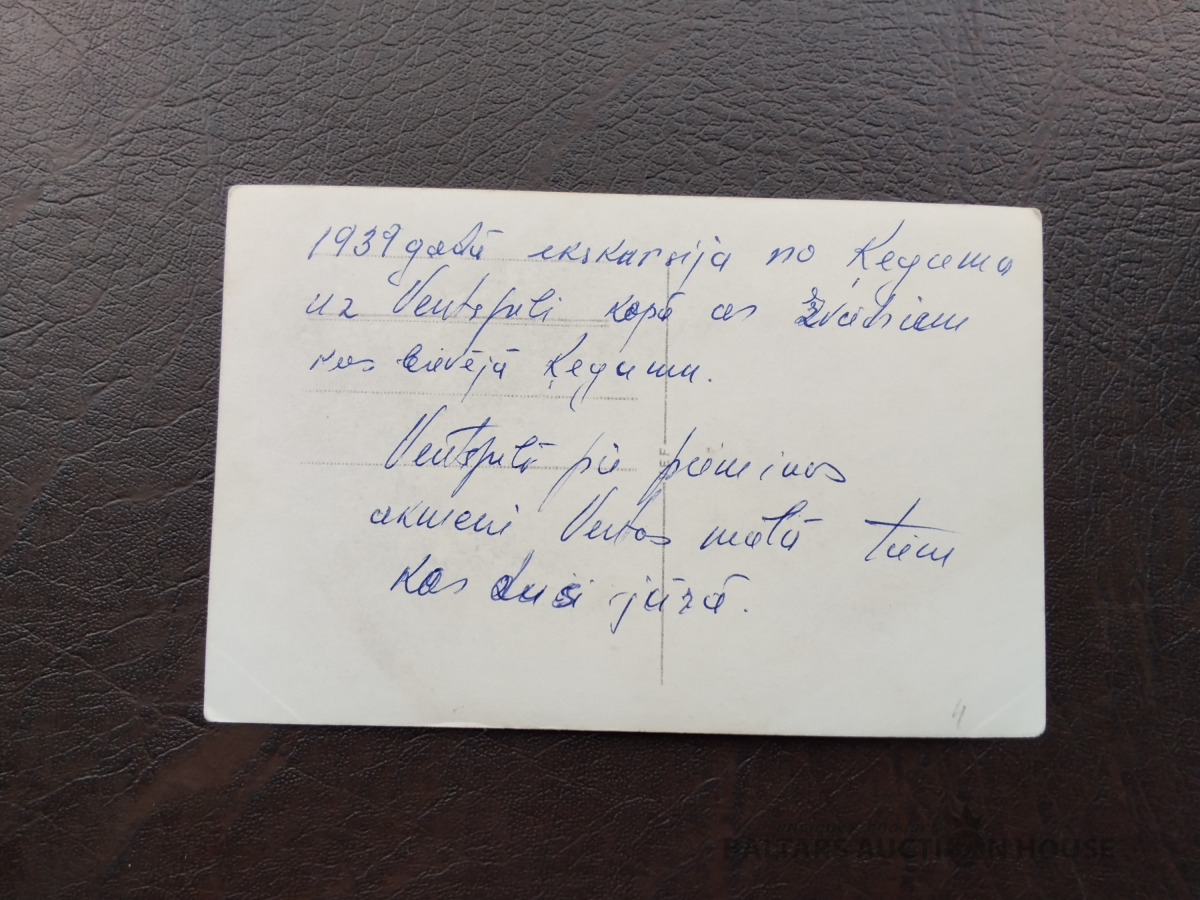 1939 gadā ekskursija no Ķeguma
uz Ventspili kopā ar Zviedriem
kas būvējā Ķegumu.
Ventspilī pie piemiņas
akmeni Ventas malā tiem
kas jūrā.
EF
4
BALTARS AUCTION HOUSE